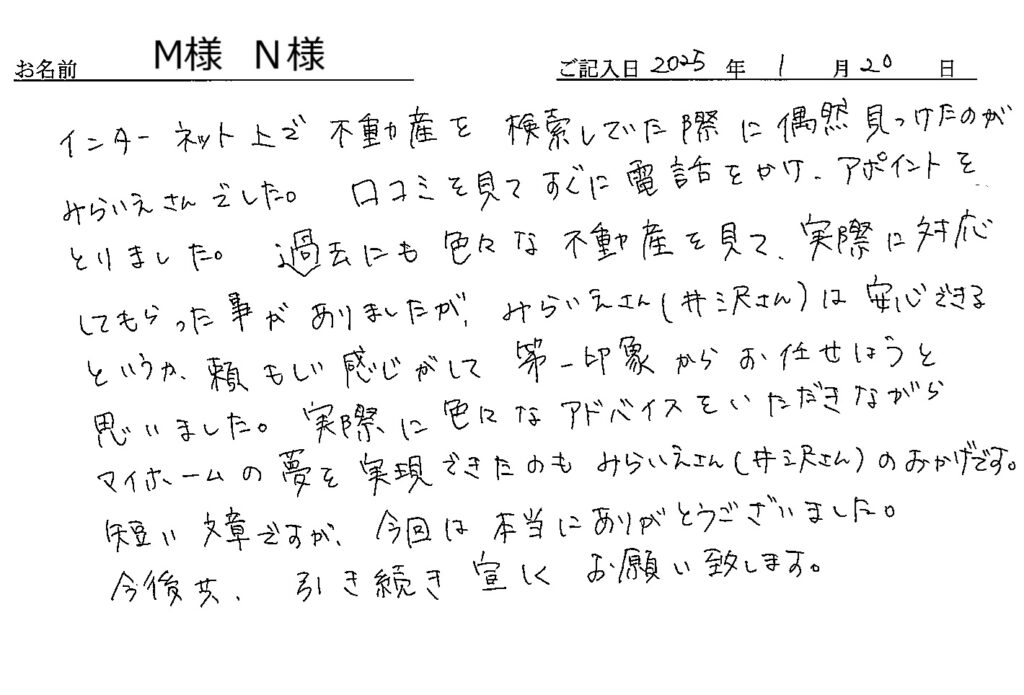 お名前 M様 N様 ご記入日 2025 年 1 月 20 日
インターネット上で不動産を検索していた際に偶然見つけたのが
みらいえさんでした。口コミを見てすぐに電話をかけ、アポイントを
とりました。過去にも色々な不動産を見て、実際に対応
してもらった事がありましたが、みらいえさん(井沢さん)は安心できる
というか、頼もしい感じがして第一印象からお任せしようと
思いました。実際に色々なアドバイスをいただきながら
マイホームの夢を実現できたのもみらいえさん(井沢さん)のおかげです。
短い文章ですが、今回は本当にありがとうございました。
今後共、引き続き宜しくお願い致します。